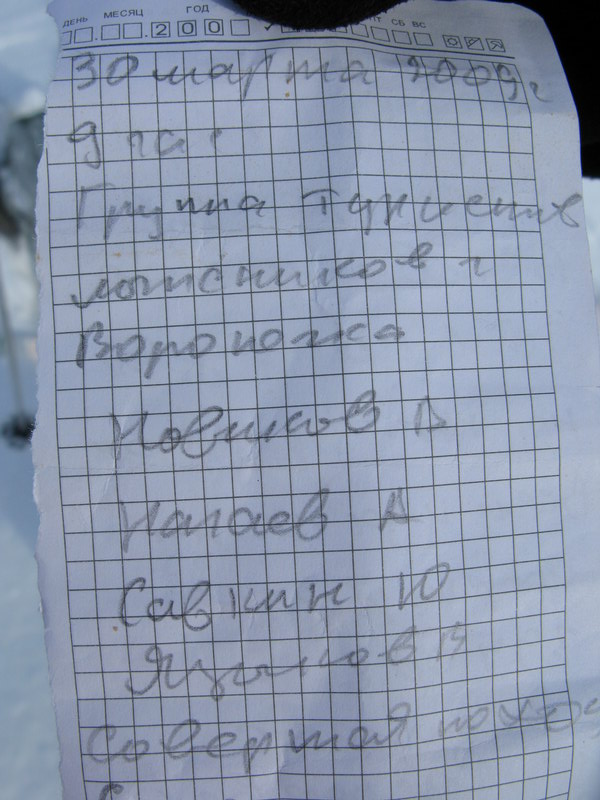 ДЕНЬ МЕСЯЦ ГОД ПТ СБ ВС
200
30 марта 2009г
9 час
Группа туристов
лыжников г
Воронежа
Новиков В
Нагаев А
Савкин Ю
Языков В
Совершая поход